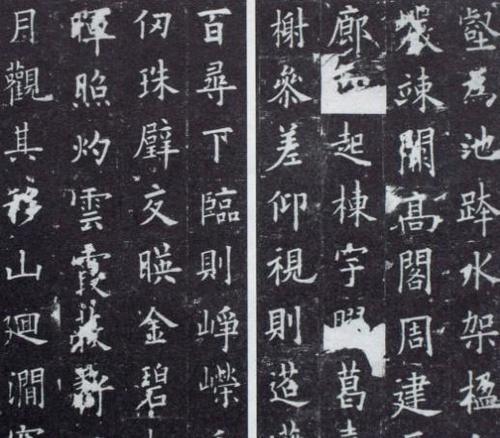 壑為池跨水架楹
巖竦闕高閣周建
廊起棟宇葛
榭參差仰視則迢
百尋下臨則崢嶸
仞珠璧交暎金碧
暉照灼雲霞蔽虧
月觀其移山廻澗